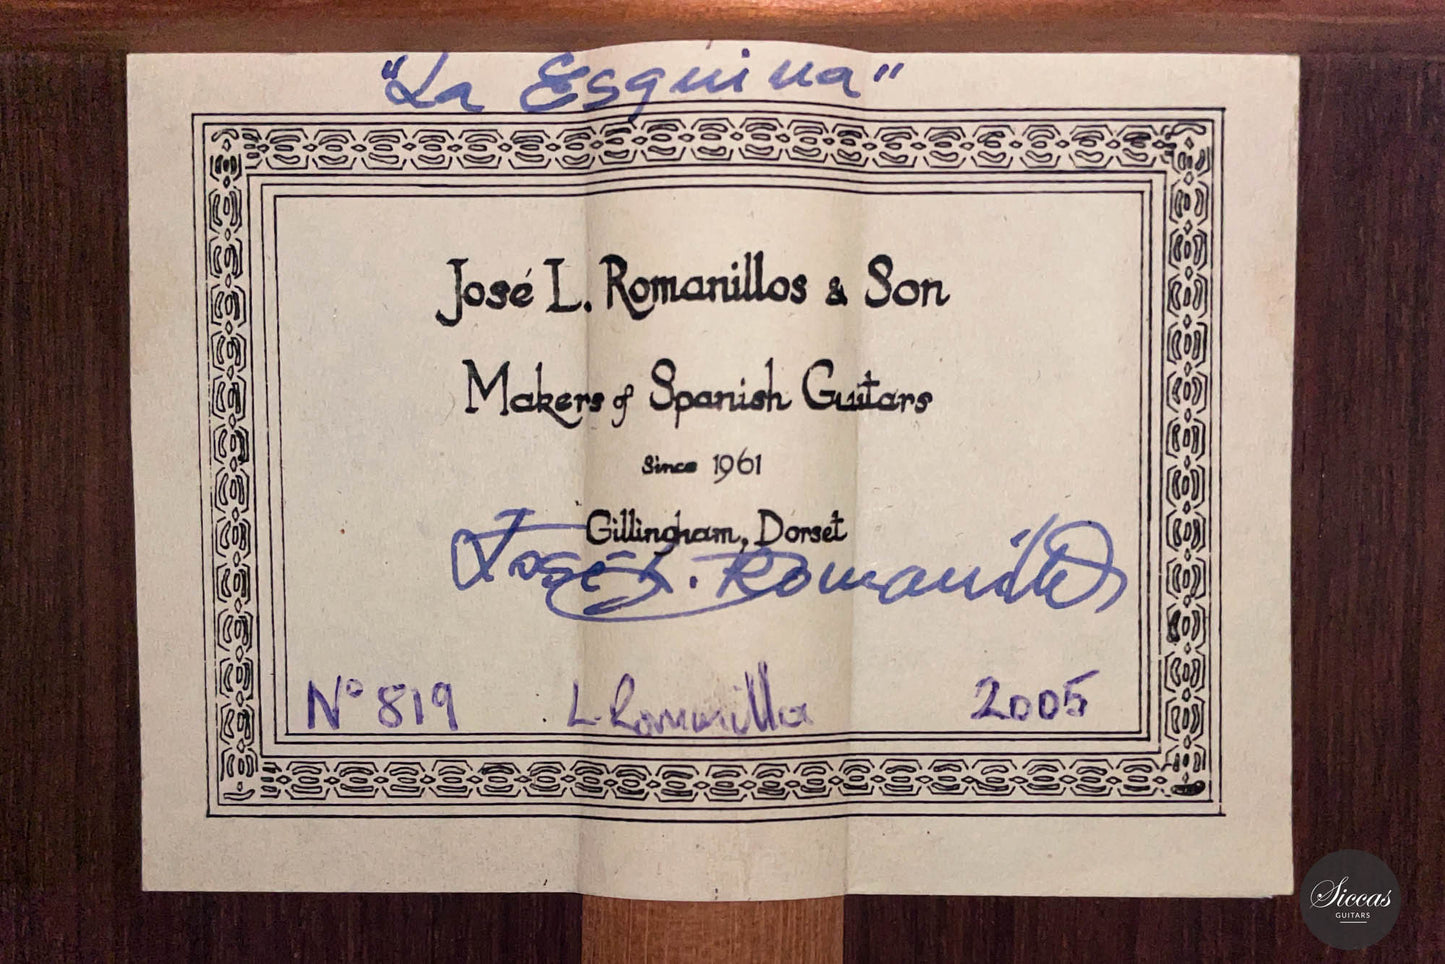 "La Esquina"
José L. Romanillos & Son
Makers of Spanish Guitars
Since 1961
Gillingham, Dorset
José L. Romanillos
Nº 819 L Romanillos 2005
Siccas
GUITARS